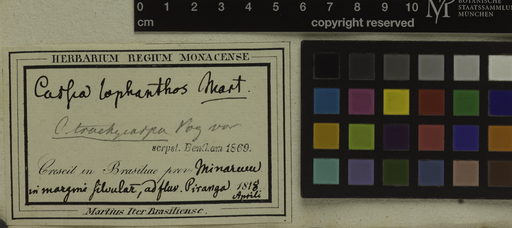 0 1 2 3 4 5 6 7 8 9 10
cm
copyright reserved
BOTANISCHE
STAATSSAMMLUNG
MÜNCHEN
HERBARIUM REGIUM MONACENSE
Caſsia lophanthos Mart.
C. trachycarpa Vog var
scrpst. Bentham 1869.
Crescit in Brasiliae prov. Minarum
in margine silvular, ad fluv. Piranga 1818
Aprili
Martius Iter Brasiliense.